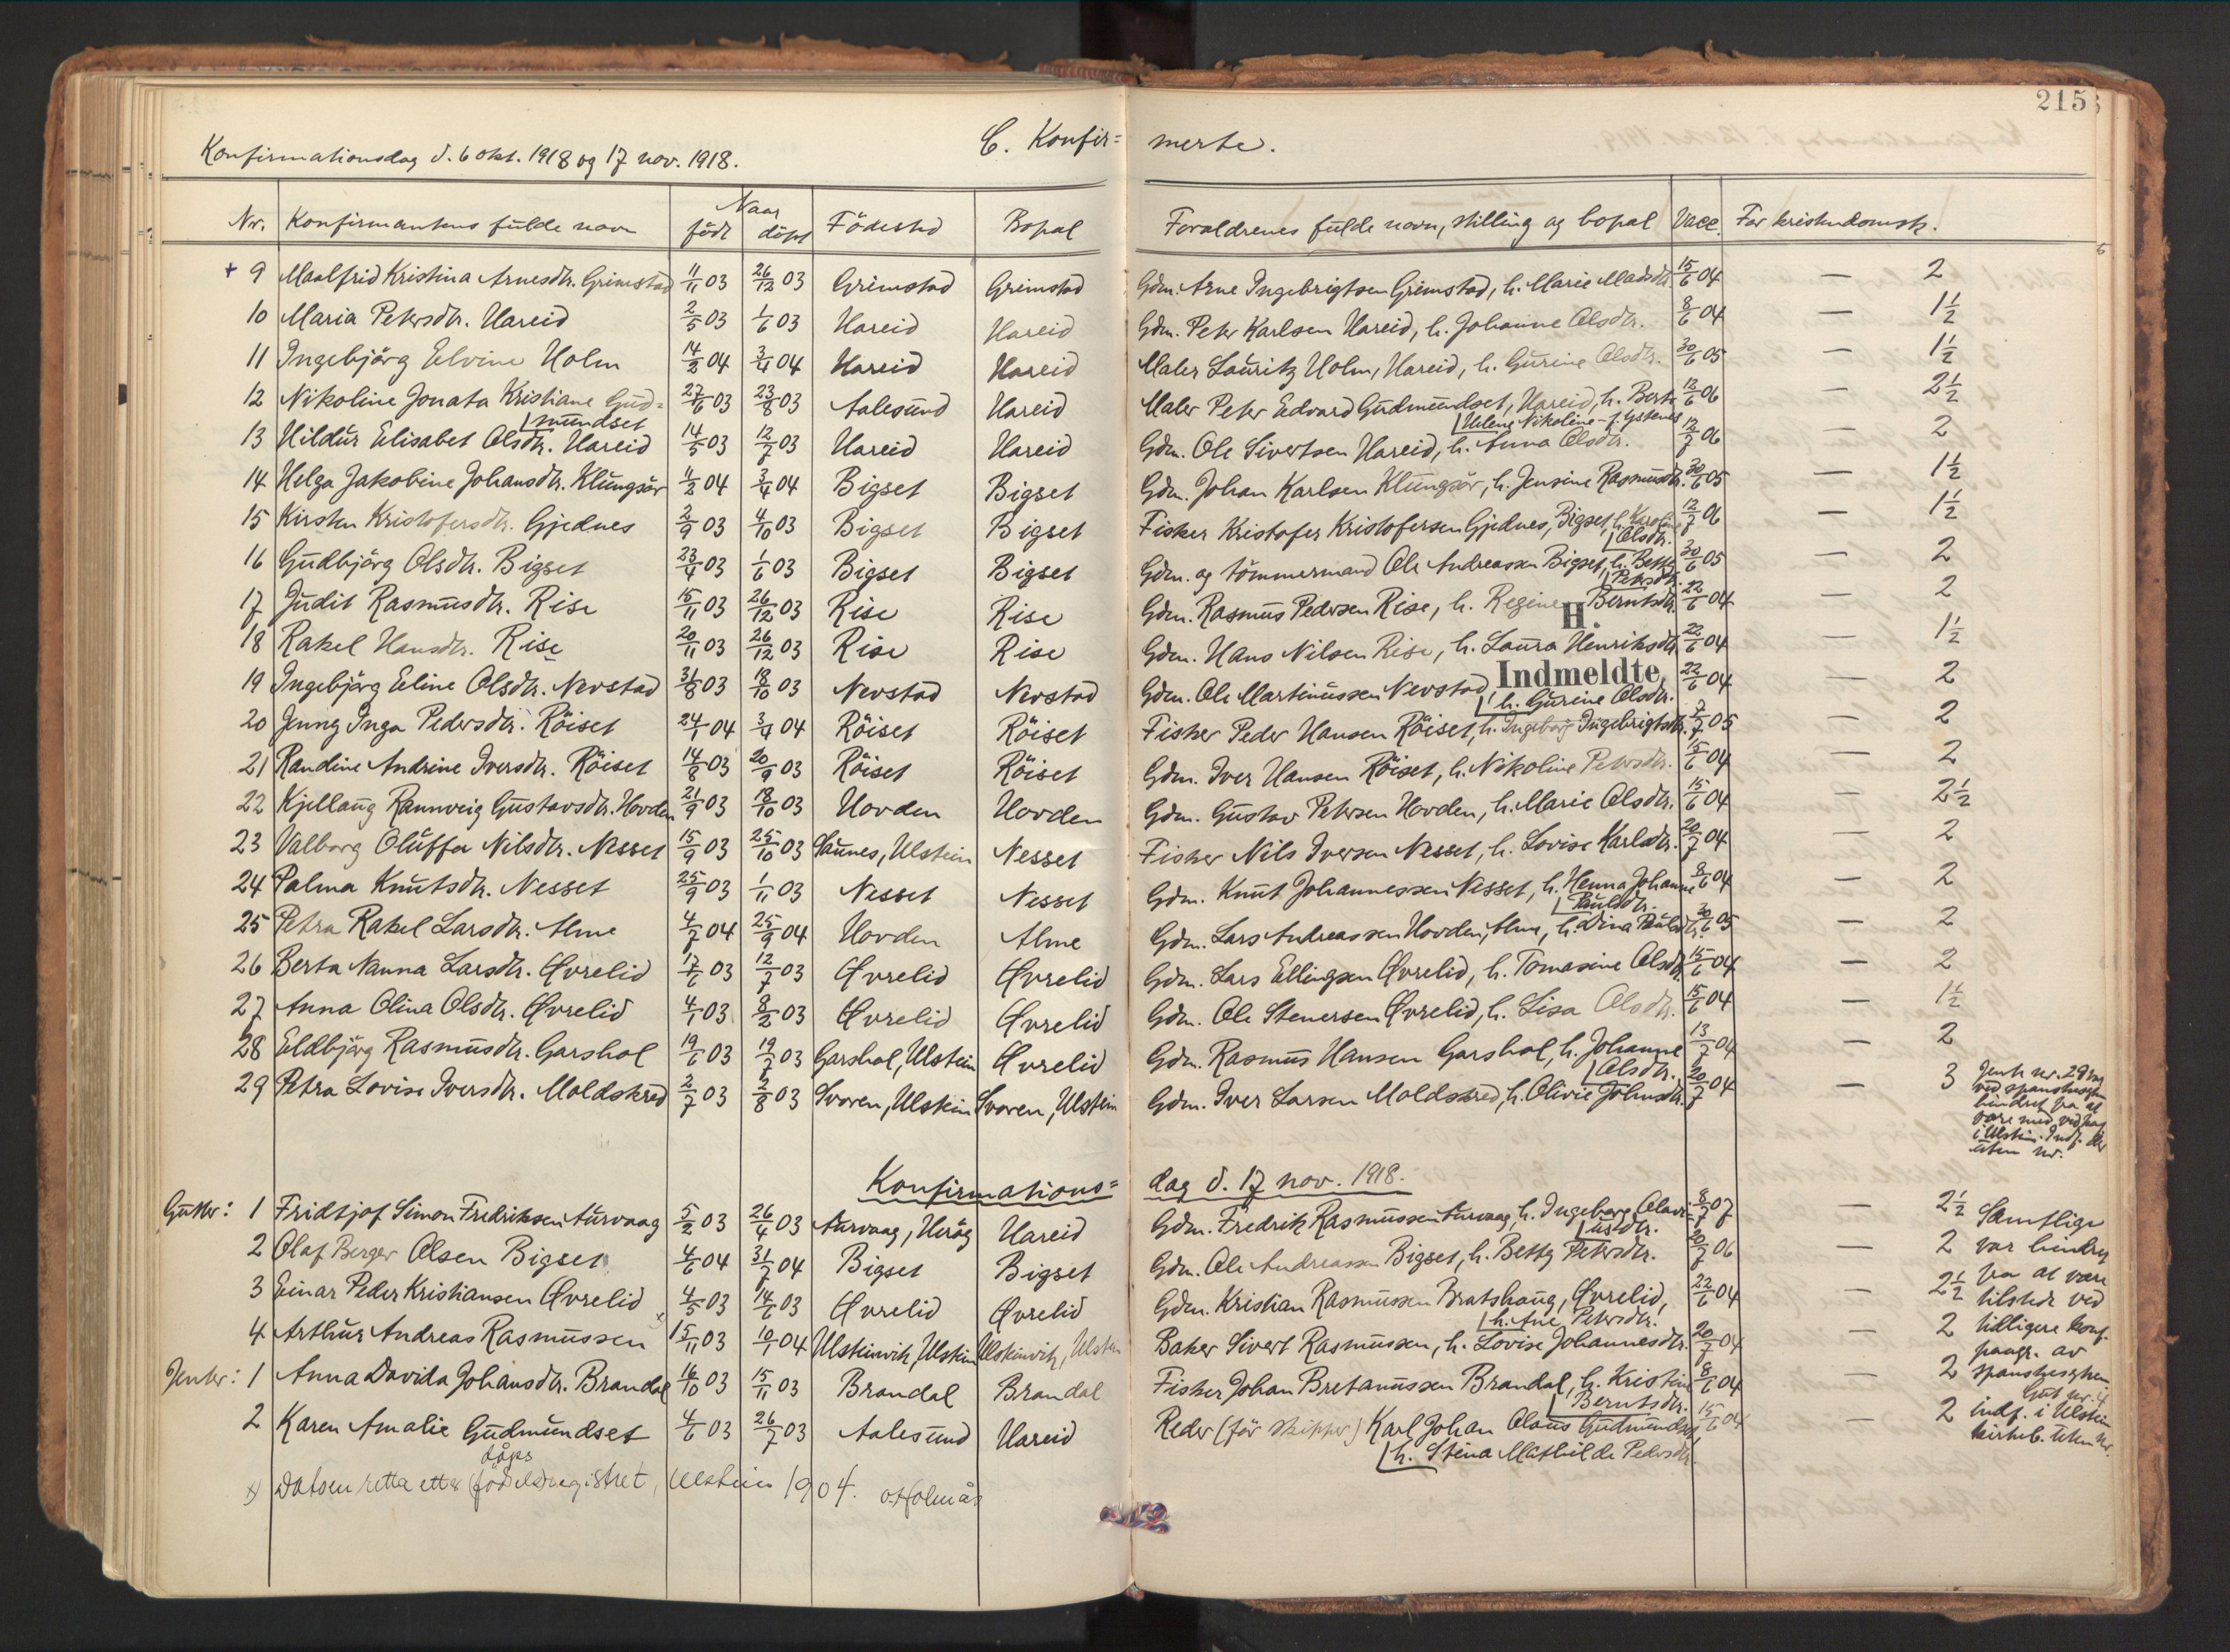 215
C. Konfir= merte.
Konfirmationsdag d. 6 okt. 1918 og 17 nov. 1918.
Nr. Konfirmantens fulde navn Naar født døpt Födested Bopæl Forældrenes fulde navn, stilling og bopæl Vacc. For kristendomsk.
+ 9 Maalfrid Kristina Arnesdtr. Grimstad 11/11 03 26/12 03 Grimstad Grimstad Gdm. Arne Ingebrigtsen Grimstad, h. Marie Madsdtr. 15/6 04 — 2
10 Maria Petersdtr. Hareid 2/5 03 1/6 03 Hareid Hareid Gdm. Peter Karlsen Hareid, h. Johanne Olsdtr. 8/6 04 — 1½
11 Ingebjörg Elvine Holm 14/2 04 3/4 04 Hareid Hareid Maler Lauritz Holm, Hareid, h. Gurine Olsdtr. 30/6 05 — 1½
12 Nikoline Jonata Kristiane Gud= 27/6 03 23/8 03 Aalesund Hareid Maler Peter Edvard Gudmundset, Hareid, h. Berte 12/6 06 — 2½
mundset Helene Nikoline f. Ystenes
13 Hildur Elisabet Olsdtr. Hareid 14/5 03 12/7 03 Hareid Hareid Gdm. Ole Sivertsen Hareid, h. Anna Olsdtr. 12/7 06 — 2
14 Helga Jakobine Johansdtr. Klungsör 11/2 04 3/4 04 Bigset Bigset Gdm. Johan Karlsen Klungsör, h. Jensine Rasmusdtr. 30/6 05 — 1½
15 Kirsten Kristofersdtr. Gjednes 2/9 03 4/10 03 Bigset Bigset Fisker Kristofer Kristofersen Gjednes, Bigset, h. Karoline 12/7 06 — 1½
Olsdtr.
16 Gudbjörg Olsdtr. Bigset 23/4 03 1/6 03 Bigset Bigset Gdm. og tömmermand Ole Andreassen Bigset, h. Betty 30/6 05 — 2
Petersdtr.
17 Judit Rasmusdtr. Rise 15/11 03 26/12 03 Rise Rise Gdm. Rasmus Pedersen Rise, h. Regine Berntsdtr. 22/6 04 — 2
H.
18 Rakel Hansdtr. Rise 20/11 03 26/12 03 Rise Rise Gdm. Hans Nilsen Rise, h. Laura Henriksdtr. 22/6 04 — 1½
Indmeldte,
19 Ingebjörg Eline Olsdtr. Nevstad 31/8 03 18/10 03 Nevstad Nevstad Gdm. Ole Martinussen Nevstad, 22/6 04 — 2
h. Gurine Olsdtr.
20 Jenny Inga Pedersdtr. Röiset 24/1 04 3/4 04 Röiset Röiset Fisker Peder Hansen Röiset, h. Ingeborg Ingebrigtsdtr. 7/7 05 — 2
21 Randine Andrine Iversdtr. Röiset 14/8 03 20/9 03 Röiset Röiset Gdm. Iver Hansen Röiset, h. Nikoline Petersdtr. 15/6 04 — 2
22 Kjellaug Rannveig Gustavsdtr. Hovden 21/9 03 18/10 03 Hovden Hovden Gdm. Gustav Petersen Hovden, h. Marie Olsdtr. 15/6 04 — 2½
23 Valborg Oluffa Nilsdtr. Nesset 15/9 03 25/10 03 Saunes, Ulstein Nesset Fisker Nils Iversen Nesset, h. Lovise Karlsdtr. 20/7 04 — 2
24 Palma Knutsdtr. Nesset 25/9 03 1/11 03 Nesset Nesset Gdm. Knut Johannessen Nesset, h. Henna Johanne 8/6 04 — 2
Paulsdtr.
25 Petra Rakel Larsdtr. Alme 4/7 04 25/9 04 Hovden Alme Gdm. Lars Andreassen Hovden, Alme, h. Dina Paulsdtr. 30/6 05 — 2
26 Berta Nanna Larsdtr. Øvrelid 17/6 03 12/7 03 Øvrelid Øvrelid Gdm. Lars Ellingsen Øvrelid, h. Tomasine Olsdtr. 15/6 04 — 2
27 Anna Olina Olsdtr. Øvrelid 4/1 03 8/2 03 Øvrelid Øvrelid Gdm. Ole Stenersen Øvrelid, h. Lisa Olsdtr. 15/6 04 — 1½
28 Eldbjörg Rasmusdtr. Garshol 19/6 03 19/7 03 Garshol, Ulstein Øvrelid Gdm. Rasmus Hansen Garshol, h. Johanne 13/7 04 — 2
Olsdtr.
29 Petra Lovise Iversdtr. Moldskred 2/7 03 2/8 03 Svoren, Ulstein Svoren, Ulstein Gdm. Iver Larsen Moldskred, h. Olivie Johnsdtr. 20/7 04 — 3
Jente nr. 29 var
ved spanskesyken
hindret fra at
være med ved konf.
i Ulstein. Indf. der
uten nr.
Konfirmations= dag d. 17 nov. 1918.
Gutter: 1 Fridtjof Simon Fredriksen Aurvaag 5/2 03 26/4 03 Aurvaag, Heröy Hareid Gdm. Fredrik Rasmussen Aurvaag, h. Ingeborg Olavi= 8/7 07 — 2½
usdtr.
2 Olaf Berger Olsen Bigset 4/6 04 31/7 04 Bigset Bigset Gdm. Ole Andreassen Bigset, h. Betty Petersdtr. 20/7 06 — 2
3 Einar Peder Kristiansen Øvrelid 4/5 03 14/6 03 Øvrelid Øvrelid Gdm. Kristian Rasmussen Bratshaug, Øvrelid, 22/6 04 — 2½
h. Ane Petersdtr.
4 Arthur Andreas Rasmussen x 15/11 03 10/1 04 Ulsteinvik, Ulstein Ulsteinvik, Ulstein Baker Sivert Rasmussen, h. Lovise Johannesdtr. 20/7 04 — 2
Jenter: 1 Anna Davida Johansdtr. Brandal 16/10 03 15/11 03 Brandal Brandal Fisker Johan Bretanussen Brandal, h. Kristine 8/6 04 — 2
Berntsdtr.
2 Karen Amalie Gudmundset 4/6 03 26/7 03 Aalesund Hareid Reder (för skipper) Karl Johan Olaus Gudmundset 15/6 04 — 2
h. Stina Mathilde Pedersdtr.
Samtlige
var hindret
fra at være
tilstede ved
tidligere konf.
paagr. av
spanskesyken
Gut nr. 4
indf. i Ulstein
kirkeb. uten nr.
døps
x) Datoen retta etter (fødsels)registret, Ulstein 1904. O. Holmås